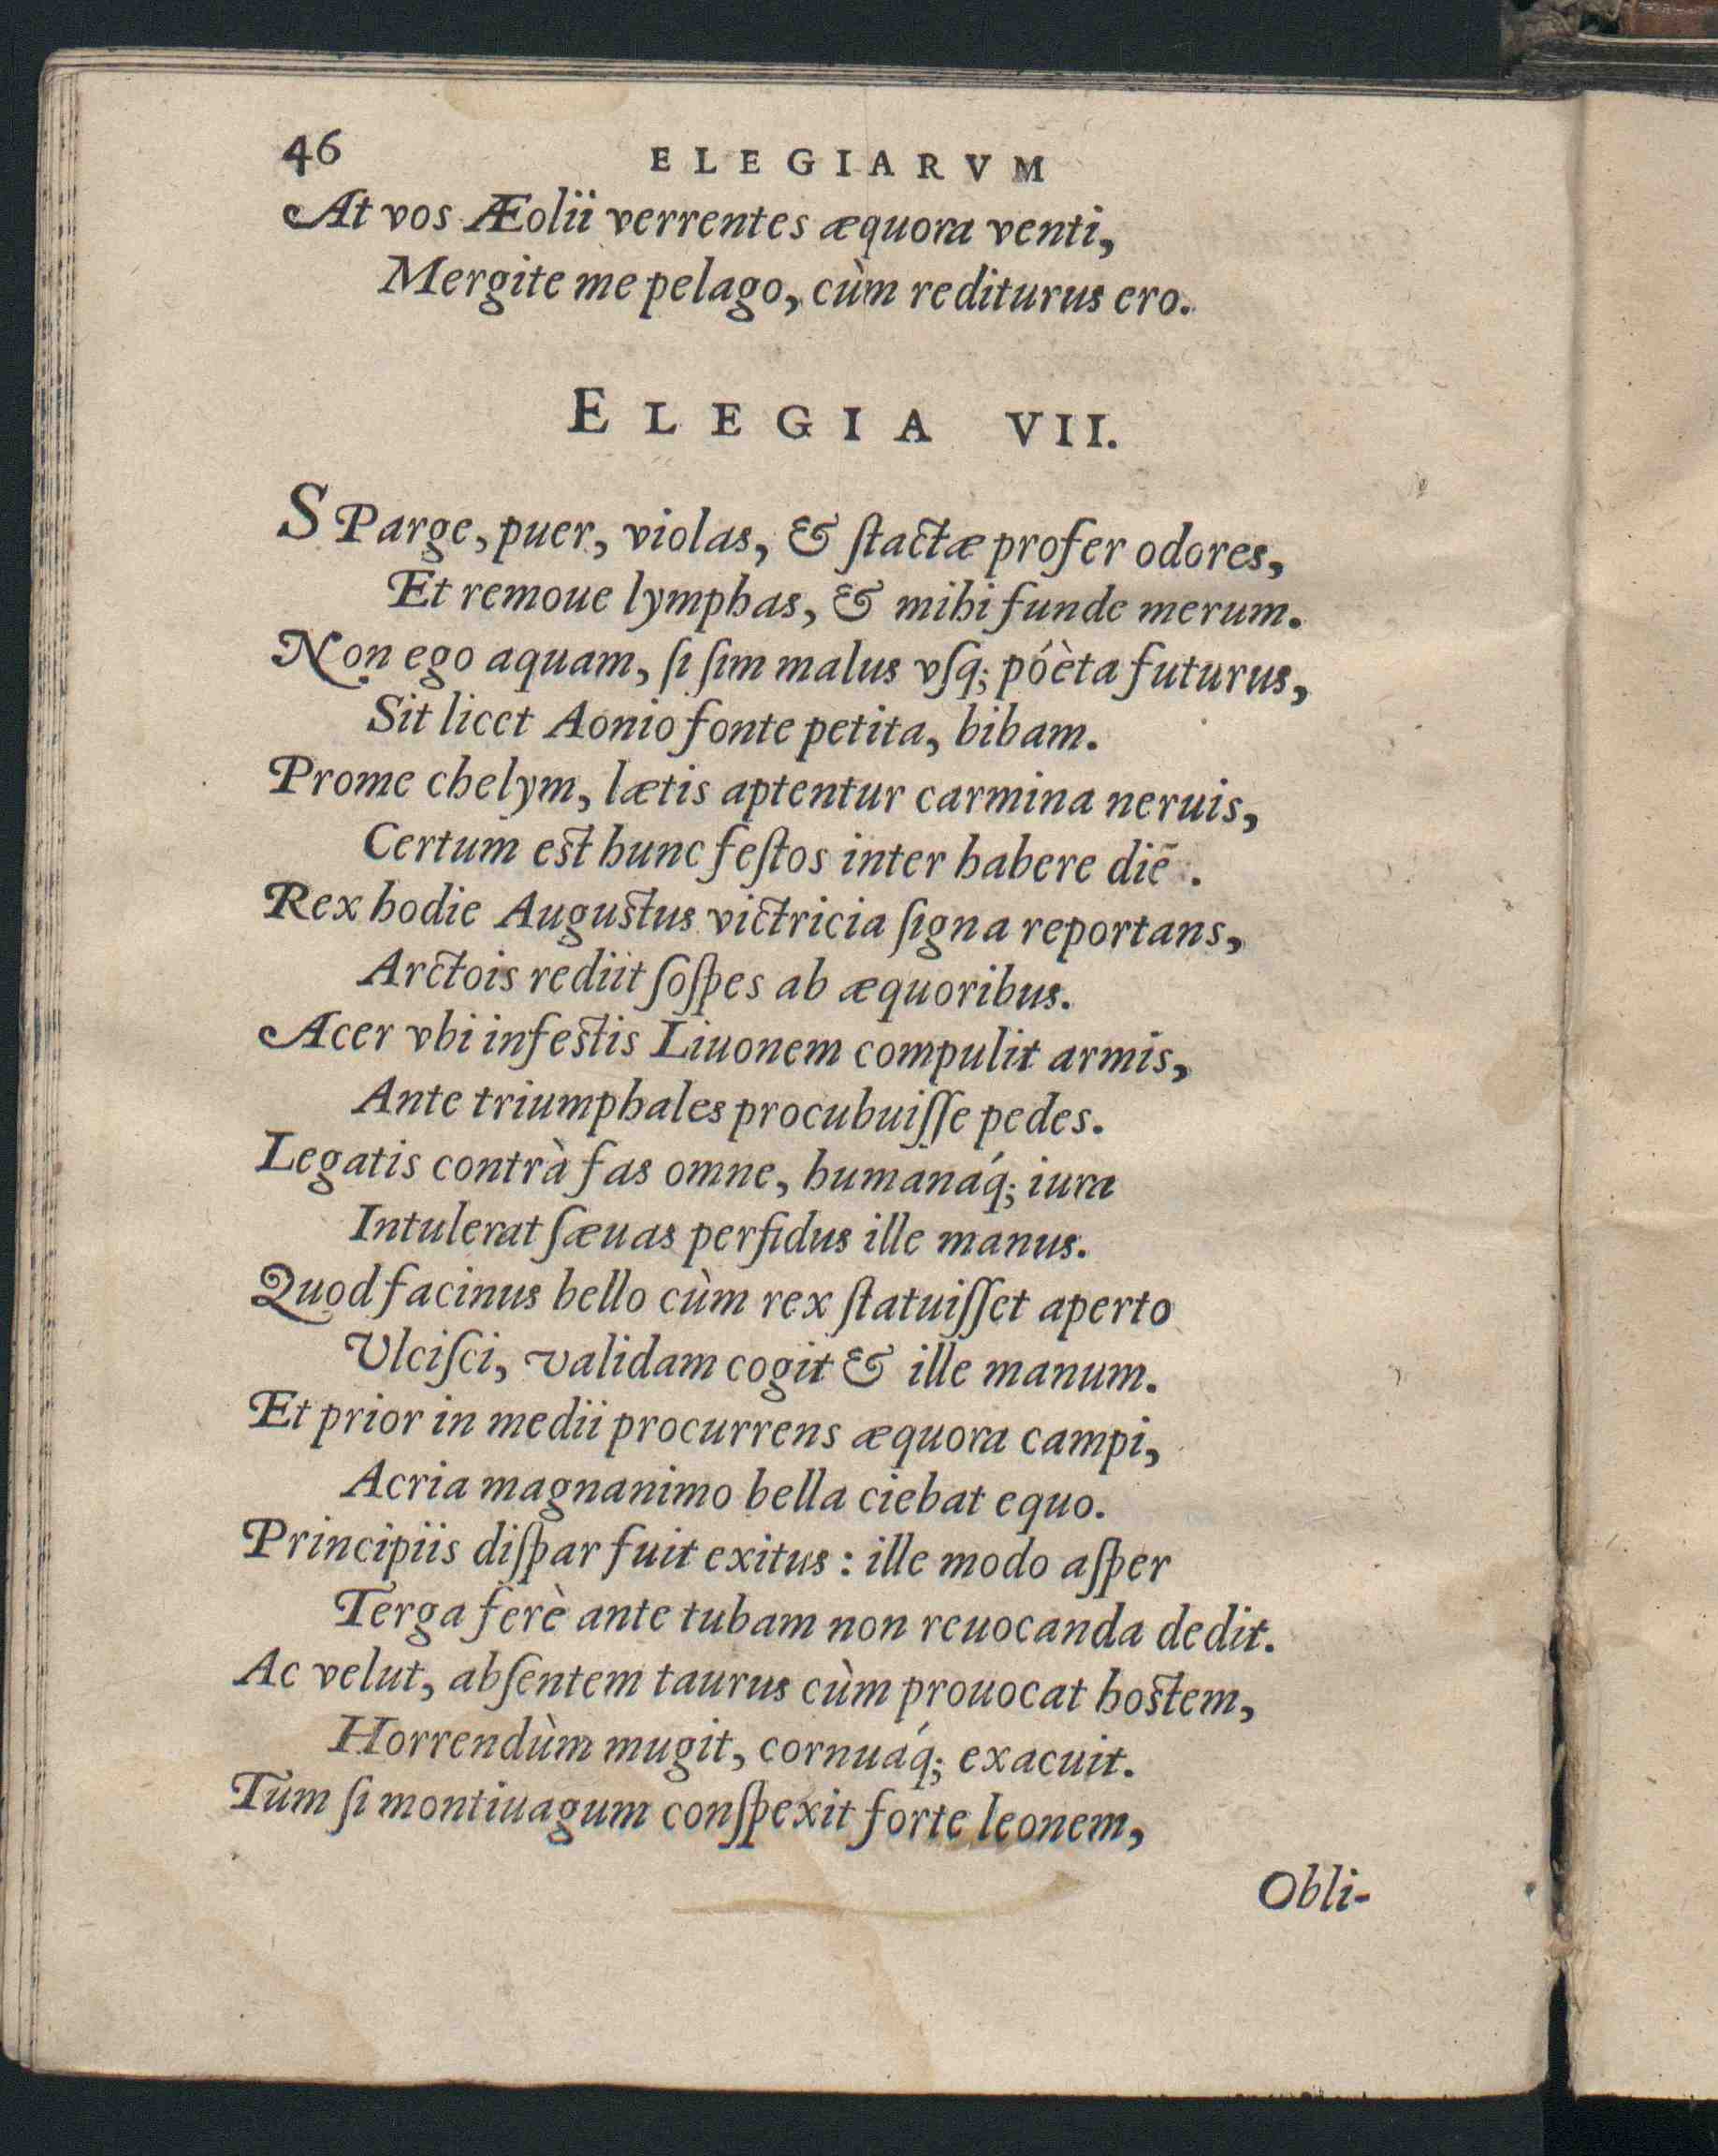 46 ELEGIARVM
At vos Æolii verrentes æquora venti,
Mergite me pelago, cùm rediturus ero.
ELEGIA VII.
SParge, puer, violas, & ſtactæ profer odores,
Et remoue lymphas, & mihi funde merum.
Non ego aquam, ſi ſim malus vſq; póèta futurus,
Sit licet Aonio fonte petita, bibam.
Prome chelym, lætis aptentur carmina neruis,
Certum est hunc feſtos inter habere diē.
Rex hodie Augustus victricia ſigna reportans,
Arctois rediit ſoſpes ab æquoribus.
Acer vbi infestis Liuonem compulit armis,
Ante triumphales procubuiſſe pedes.
Legatis contrà fas omne, humanáq; iura
Intulerat ſæuas perfidus ille manus.
Quod facinus bello cùm rex ſtatuiſſet aperto
Vlciſci, validam cogit & ille manum.
Et prior in medii procurrens æquora campi,
Acria magnanimo bella ciebat equo.
Principiis diſpar fuit exitus: ille modo aſper
Terga ferè ante tubam non reuocanda dedit.
Ac velut, abſentem taurus cùm prouocat hostem,
Horrendùm mugit, cornuáq; exacuit.
Tum ſi montiuagum conſpexit forte leonem,
Obli-